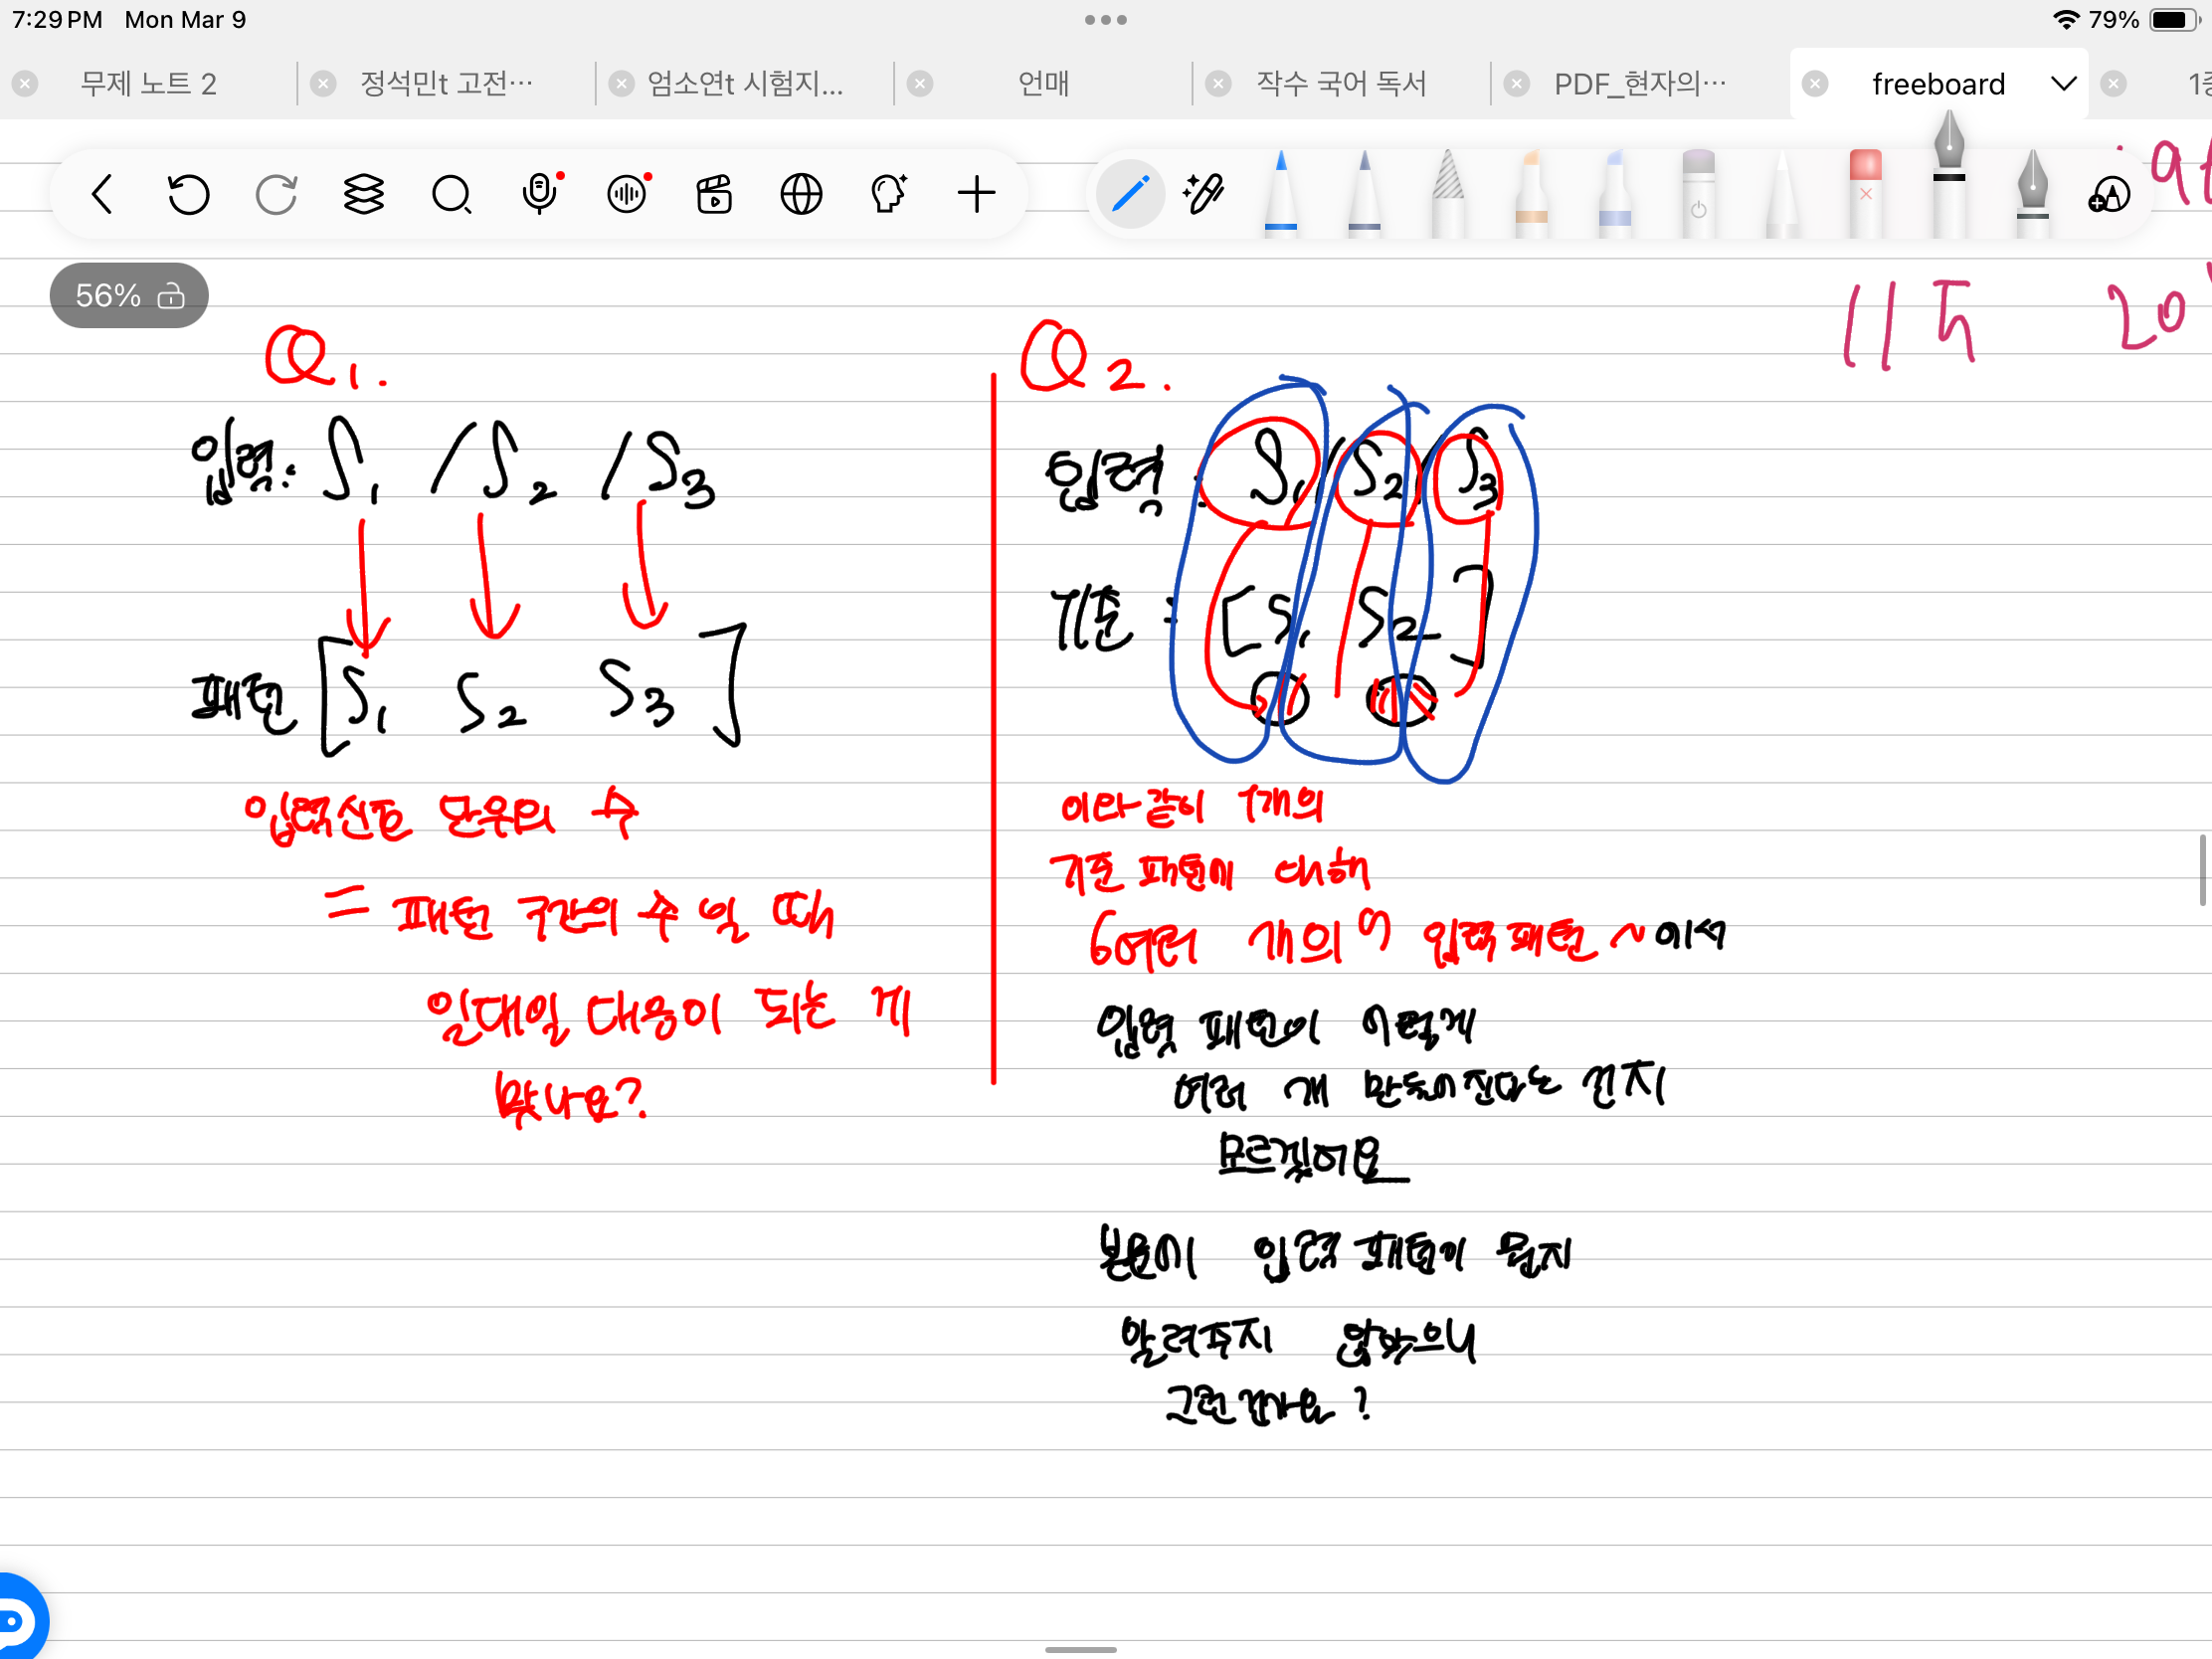 7:29 PM Mon Mar 9
79%
무제 노트 2
정석민t 고전…
엄소연t 시험지...
언매
작수 국어 독서
PDF_현자의…
freeboard
56%
Q1.
입력: S1 / S2 / S3
패턴 [S1 S2 S3]
입력신호 단위의 수
= 패턴 구간의 수 일 때
일대일 대응이 되는 게
맞나요?
Q2.
입력: S1 / S2 / S3
기준: [S1 S2]
이와 같이 1개의
기준 패턴에 대해
여러 개의 입력 패턴 ~ 에서
입력 패턴이 어떻게
여러 개 만들어진다는 건지
모르겠어요
본문에 입력 패턴이 뭔지
알려주지 않았으니
그런 건가요?
20